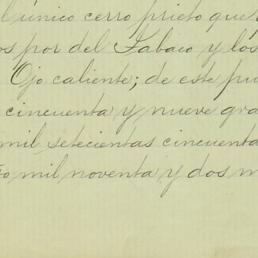 l único cerro prieto que
os por del Tabaco y los
Ojo caliente; de este pu
cincuenta y nueve gra
mil setecientas cincuenta
o mil noventa y dos m